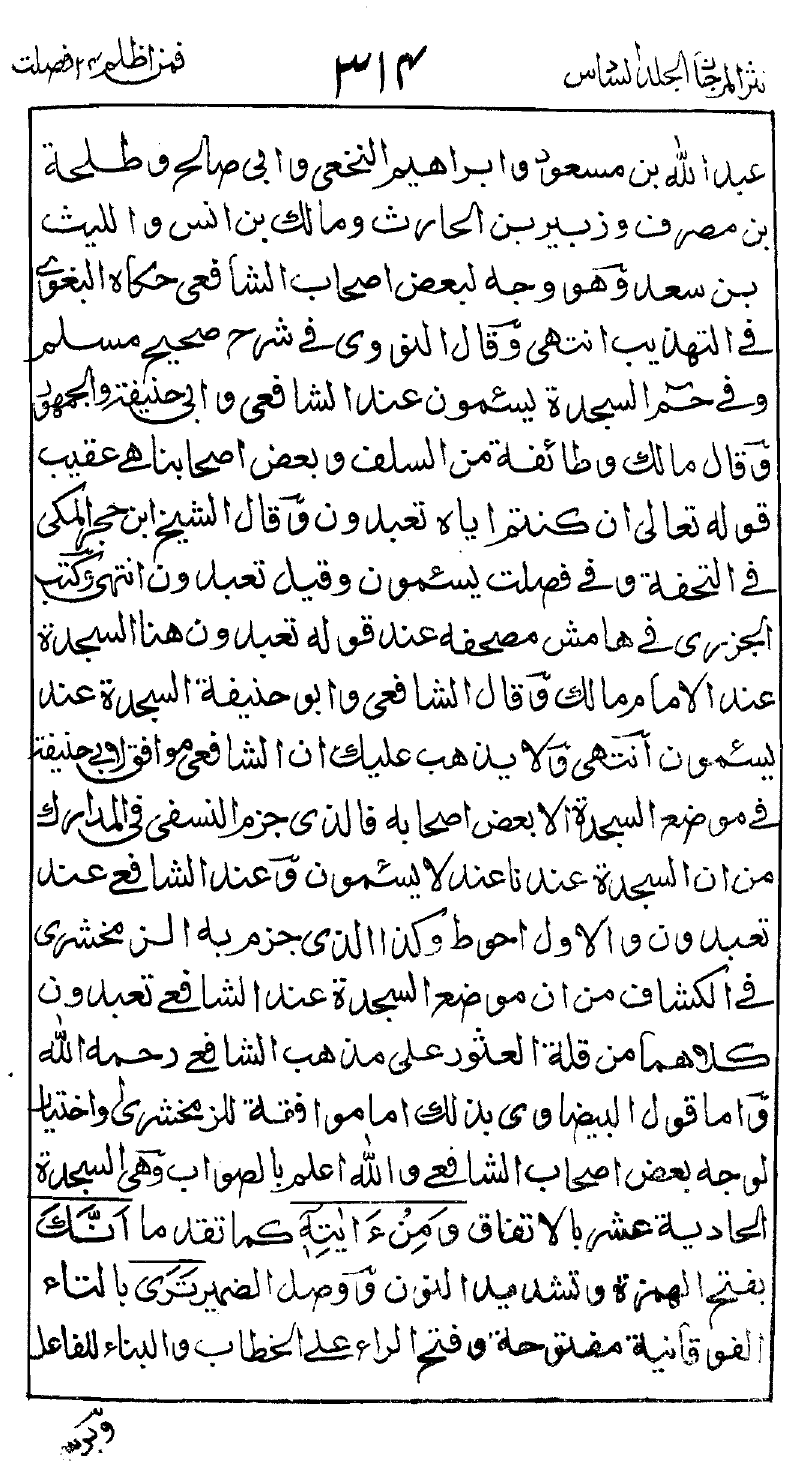 نثر المرجان الجلد السادس ٣١٤ فمن اظلم ٢٤ فصلت
عبد الله بن مسعود وابراهيم النخعي وابي صالح وطلحة
بن مصرف وزبير بن الحارث ومالك بن انس والليث
بن سعد وهو وجه لبعض اصحاب الشافعي حكاه البغوي
في التهذيب انتهى وقال النووي في شرح صحيح مسلم
وفي حم السجدة يسئمون عند الشافعي وابي حنيفة والجمهور
وقال مالك وطائفة من السلف وبعض اصحابنا هي عقيب
قوله تعالى ان كنتم اياه تعبدون وقال الشيخ ابن حجر المكي
في التحفة وفي فصلت يسئمون وقيل تعبدون انتهى وكتب
الجزري في هامش مصحفه عند قوله تعبدون هنا السجدة
عند الامام مالك وقال الشافعي وابو حنيفة السجدة عند
يسئمون انتهى ولا يذهب عليك ان الشافعي موافق لابي حنيفة
في موضع السجدة الا بعض اصحابه فالذي جزم النسفي في المدارك
من ان السجدة عندنا عند لا يسئمون وعند الشافعي عند
تعبدون والاول احوط وكذا الذي جزم به الزمخشري
في الكشاف من ان موضع السجدة عند الشافعي تعبدون
كلاهما من قلة العثور على مذهب الشافعي رحمه الله
واما قول البيضاوي بذلك اما موافقة للزمخشري واختيار
لوجه بعض اصحاب الشافعي والله اعلم بالصواب وهي السجدة
الحادية عشر بالاتفاق وَمِنْ ءَايٰتِهٖ كما تقدم ما اَنَّكَ
بفتح الهمزة وتشديد النون ووصل الضمير تَرَى بالتاء
الفوقانية مفتوحة وفتح الراء على الخطاب والبناء للفاعل